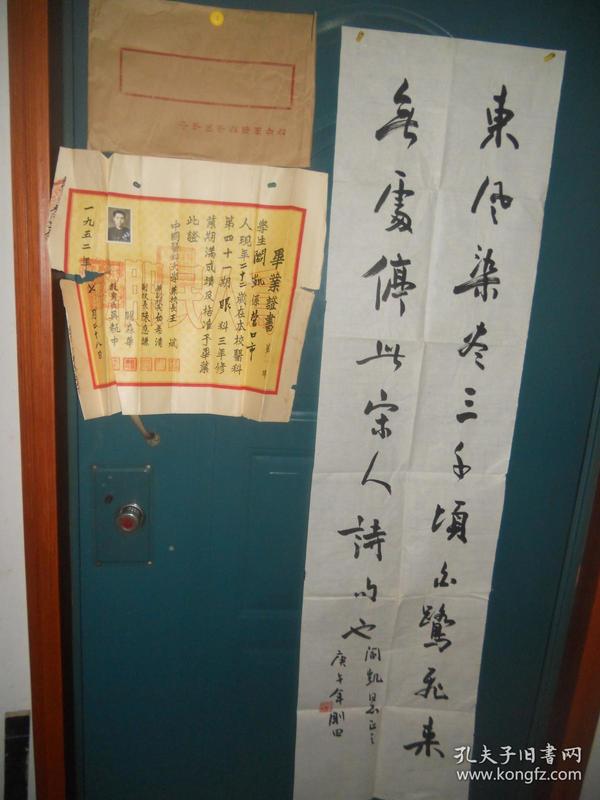 東風染盡三千頃白鷺飛來
無處停此宋人詩句也
閻凱同志正之
庚午年剛田
畢業證書
學生閻凱係營口市
人現年二十二歲在本校醫科
第四十一期眼科三年修
業期滿成績及格准予畢業
此證
中國醫科大學兼校長王斌
副校長陳應謙
教務長吳執中
一九五二年 月二十八日
孔夫子旧書网
www.kongfz.com